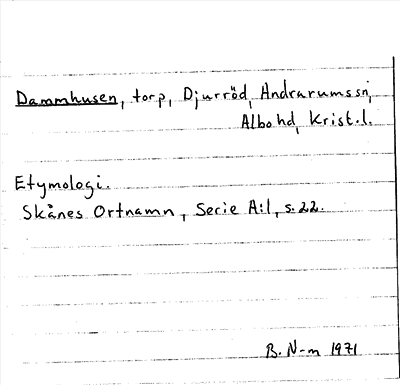 Dammhusen, torp, Djurröd, Andrarums sn,
Albo hd, Krist. l.
Etymologi.
Skånes Ortnamn, Serie A:1, s. 22.
B. N-m 1971